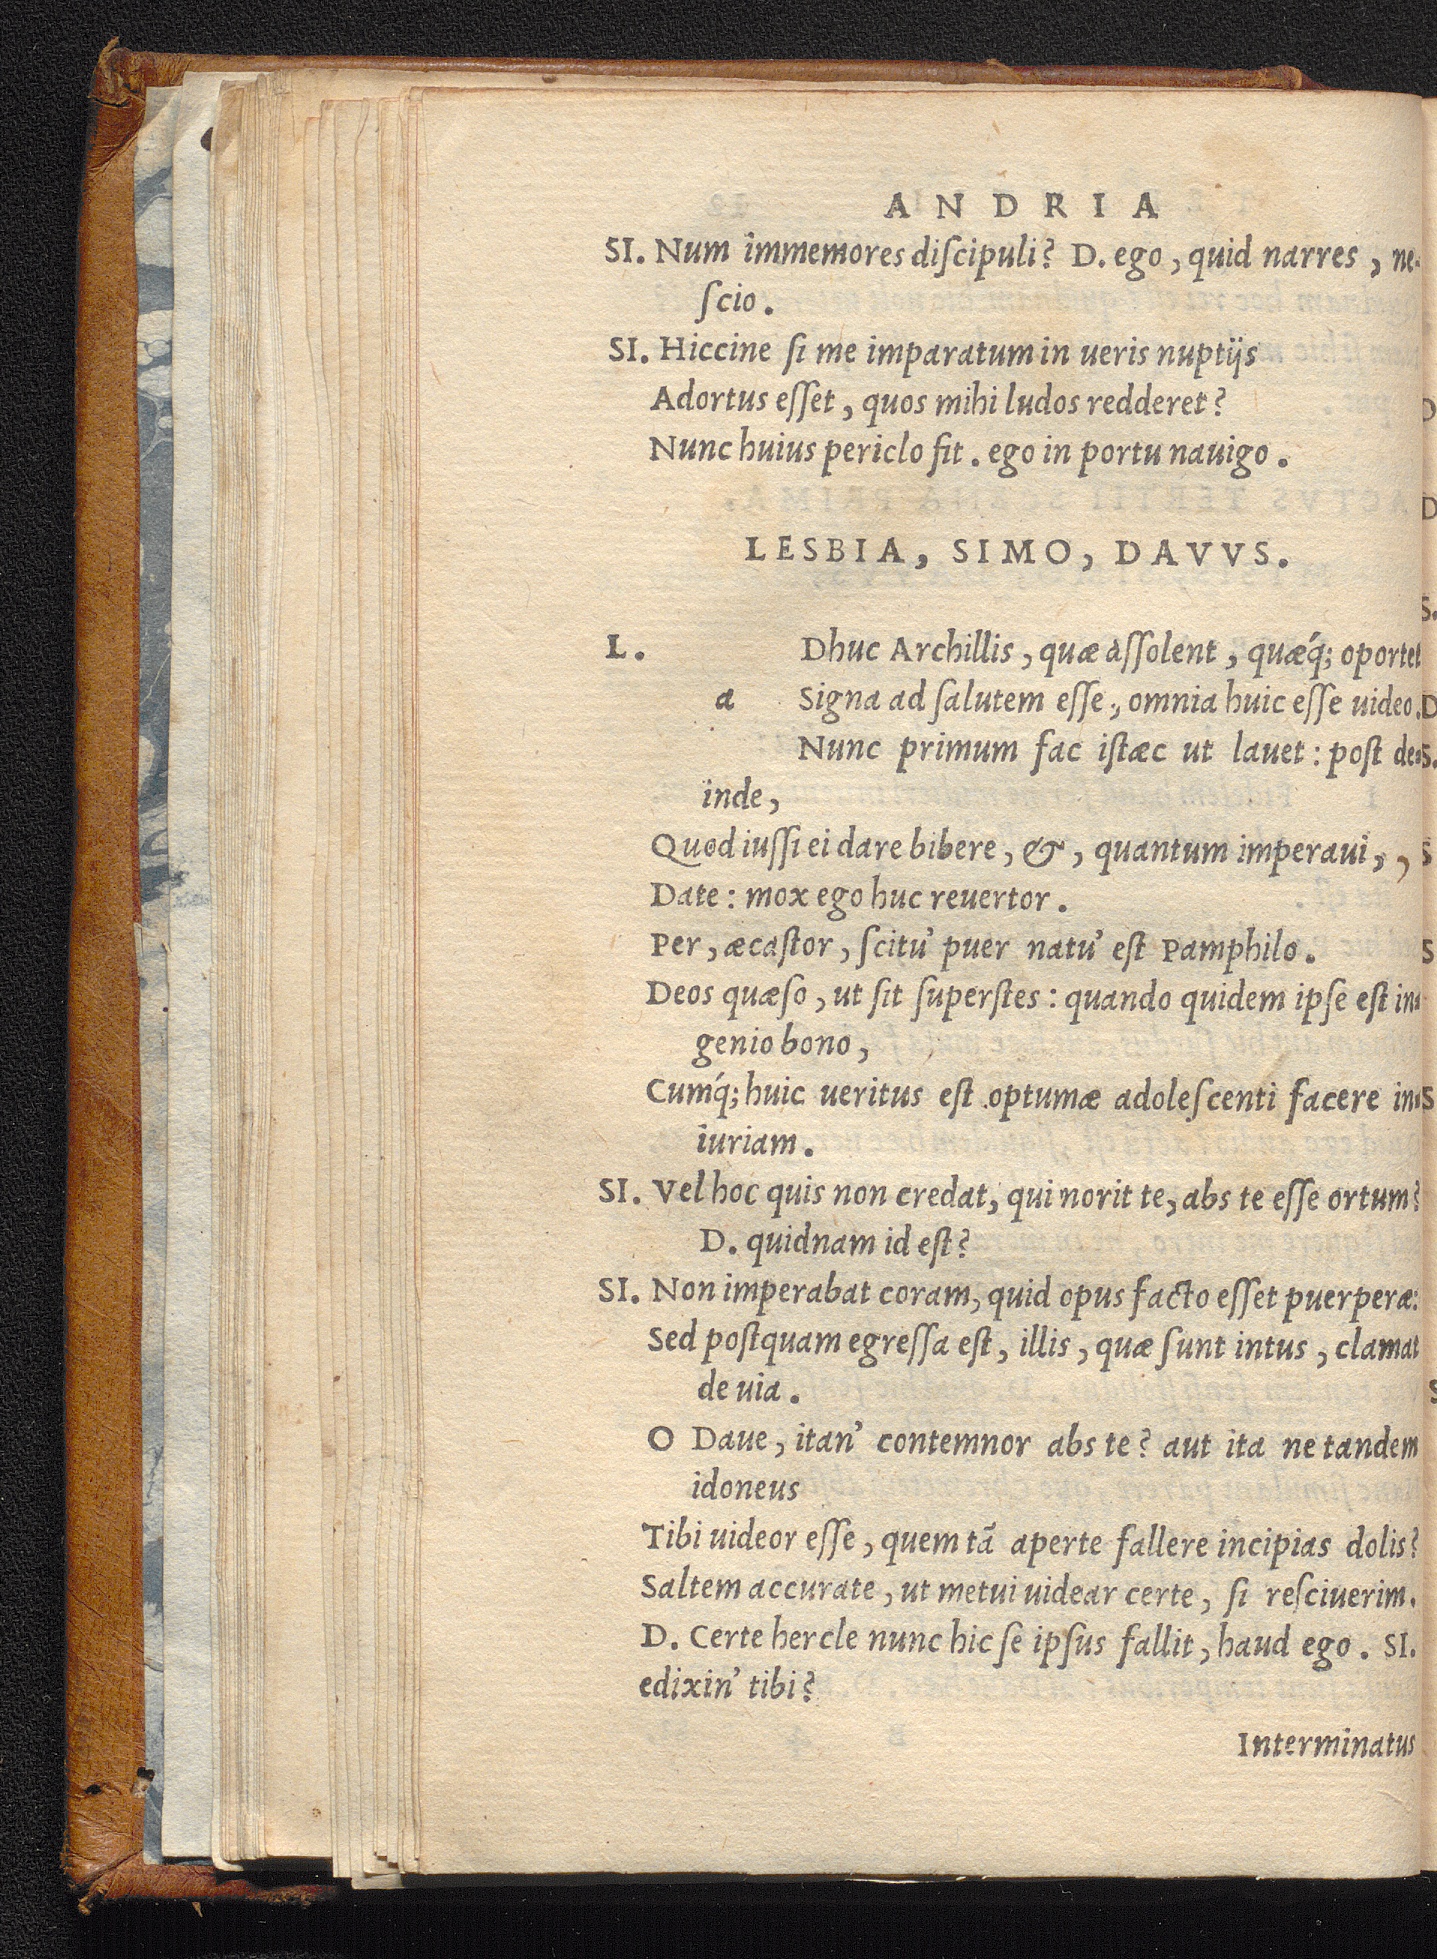 ANDRIA
SI. Num immemores diſcipuli? D. ego, quid narres, ne-
ſcio.
SI. Hiccine ſi me imparatum in ueris nuptijs
Adortus eſſet, quos mihi ludos redderet?
Nunc huius periclo fit. ego in portu nauigo.
LESBIA, SIMO, DAVVS.
L. Dhuc Archillis, quæ aſſolent, quæq́; oportet
a Signa ad ſalutem eſſe, omnia huic eſſe uideo.
Nunc primum fac iſtæc ut lauet: poſt de-
inde,
Quod iuſſi ei dare bibere, &, quantum imperaui,,
Date: mox ego huc reuertor.
Per, æcaſtor, ſcitu' puer natu' eſt Pamphilo.
Deos quæſo, ut ſit ſuperſtes: quando quidem ipſe eſt in-
genio bono,
Cumq́; huic ueritus eſt optumæ adoleſcenti facere in-
iuriam.
SI. Vel hoc quis non credat, qui norit te, abs te eſſe ortum?
D. quidnam id eſt?
SI. Non imperabat coram, quid opus facto eſſet puerperæ:
Sed poſtquam egreſſa eſt, illis, quæ ſunt intus, clamat
de uia.
O Daue, itan' contemnor abs te? aut ita ne tandem
idoneus
Tibi uideor eſſe, quem tā aperte fallere incipias dolis?
Saltem accurate, ut metui uidear certe, ſi reſciuerim.
D. Certe hercle nunc hic ſe ipſus fallit, haud ego. SI.
edixin' tibi?
Interminatus